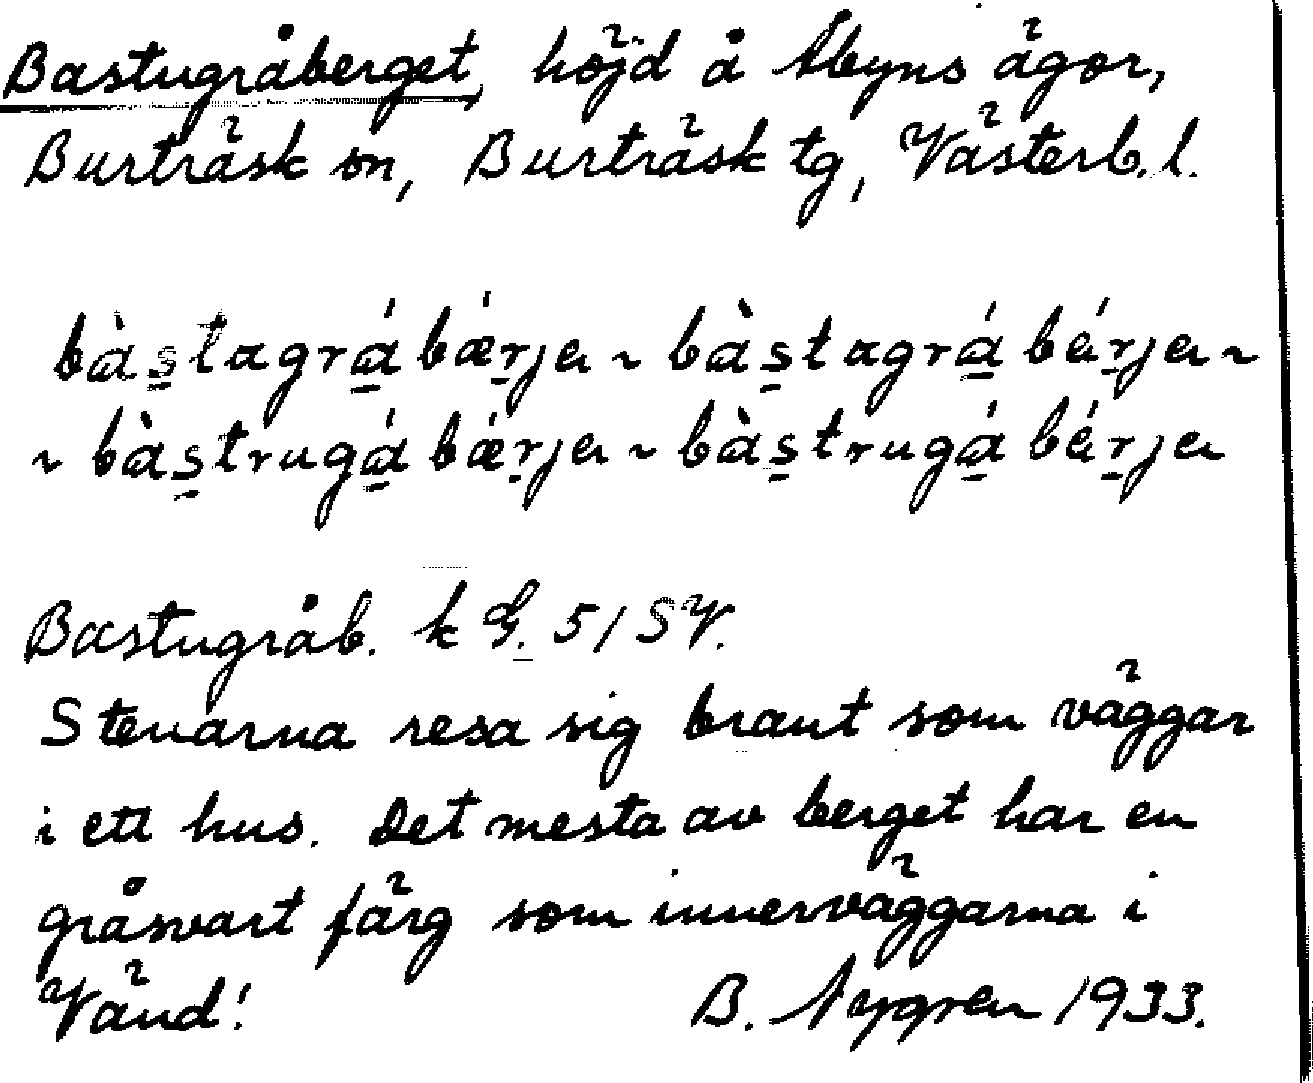 Bastugråberget, höjd å Åbyns ägor,
Burträsk sn, Burträsk tg, Västerb. l.
bàs̱tagrá̱bǽṟjeɩ ~ bàs̱tagrá̱béṟjeɩ ~
~ bàs̱trugá̱bǽṟjeɩ ~ bàs̱trugá̱béṟjeɩ
Bastugråb. k G. 51 SV.
Stenarna resa sig brant som väggar
i ett hus. Det mesta av berget har en
gråsvart färg som innerväggarna i
Vänd! B. Nygren 1933.